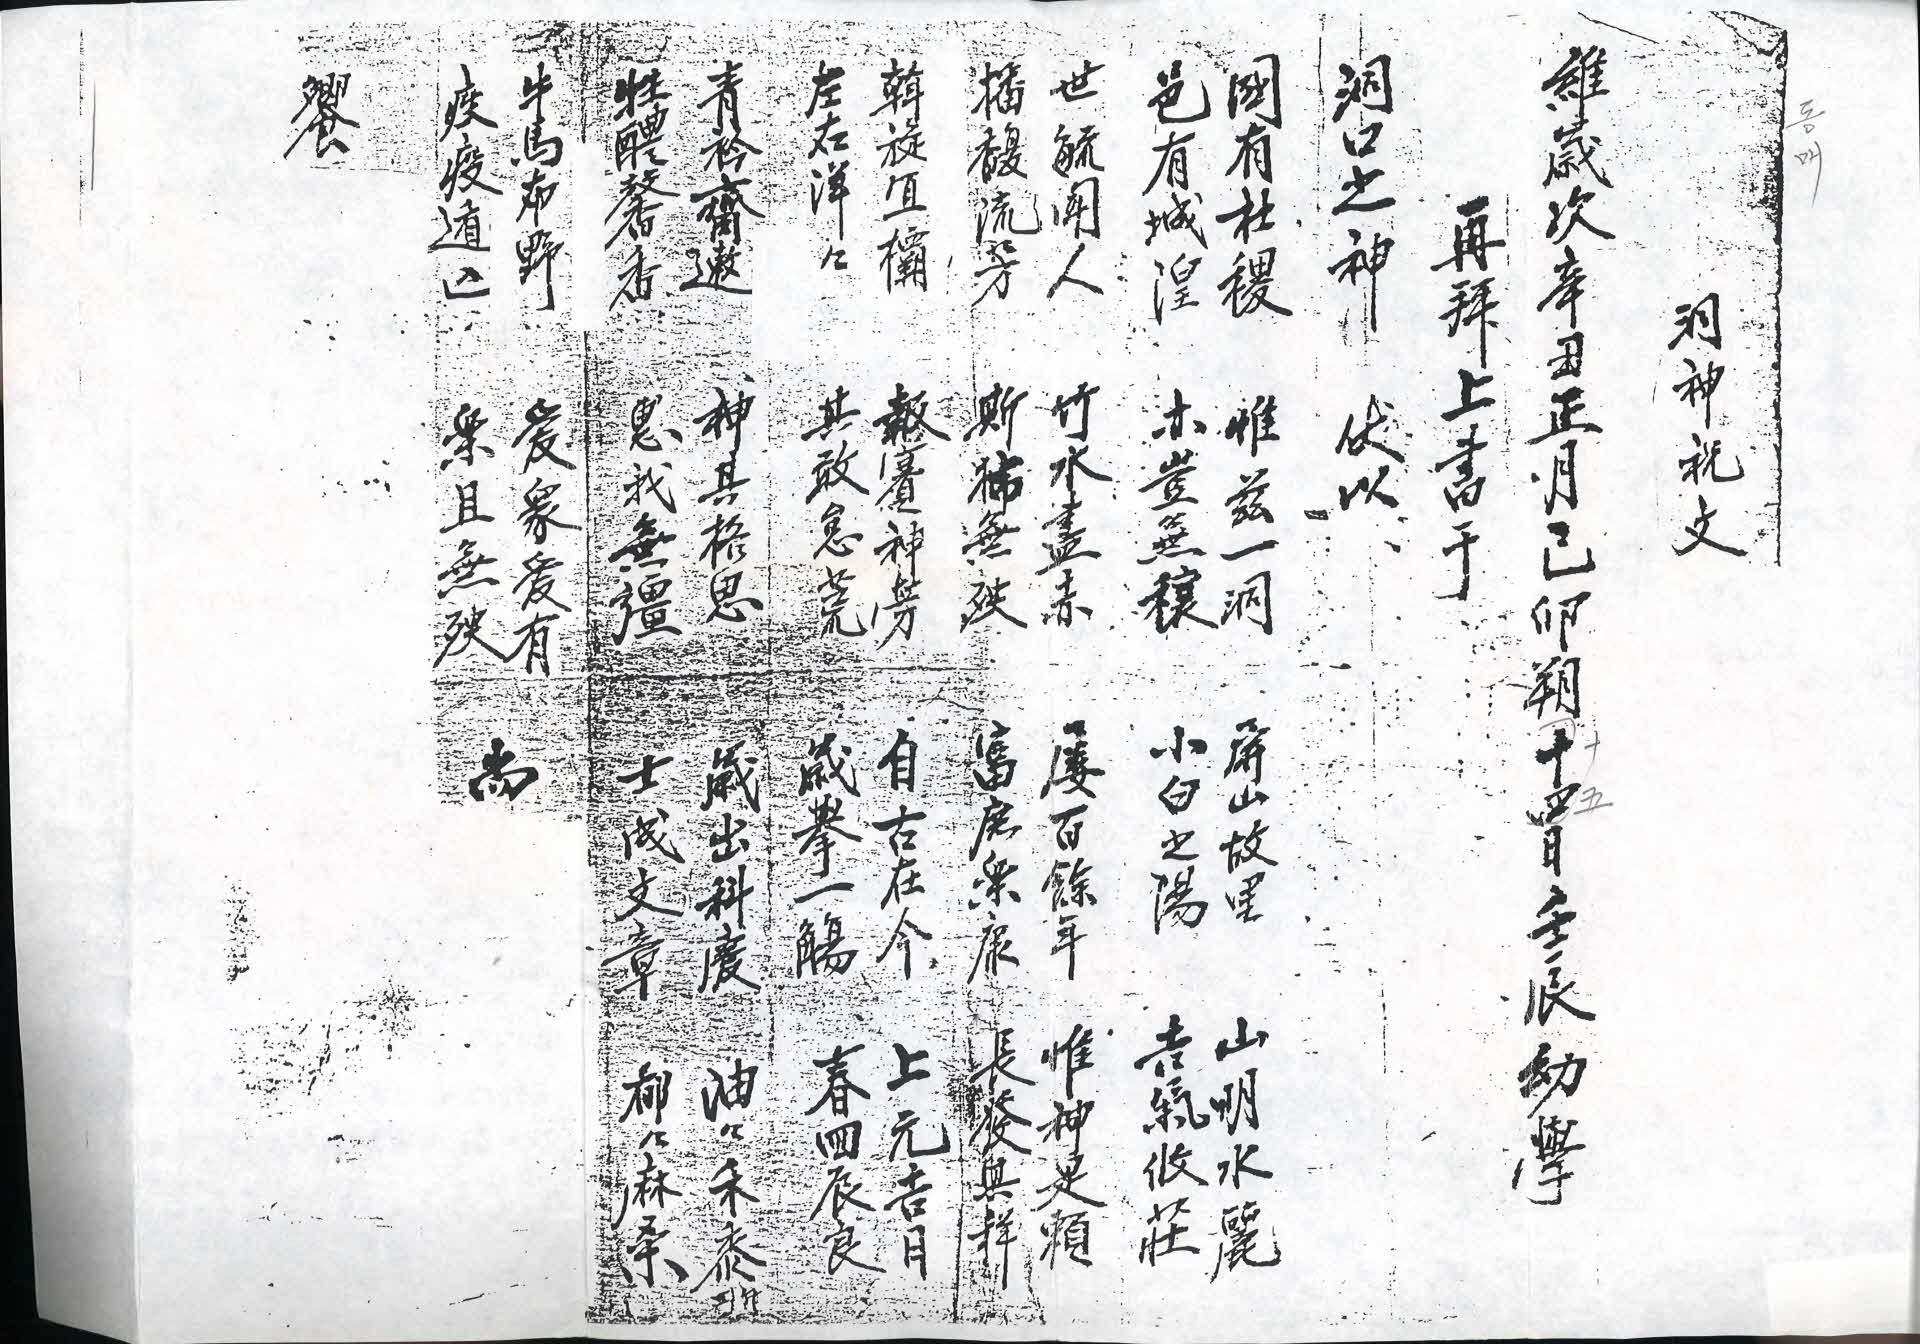 洞神祝文
동매
維歲次辛丑正月己卯朔十四日壬辰 幼學
十五
再拜上書于
洞口之神 伏以
國有社稷 惟茲一洞 屏山故里 山明水麗
邑有城湟 亦豈無穰 小白之陽 吉氣攸莊
世毓聞人 竹水盡赤 屢百餘年 惟神是賴
播馥流芳 斯 無殃 富庶樂康 長發其祥
斡旋宜 報賽神勞 自古在今 上元吉月
左右洋々 其敢怠荒 歲擧一觴 春四辰良
青衿齋遬 神其格思 歲出科慶 油々禾黍
牲醴馨香 惠我無疆 士成文章 郁々麻桑
牛馬布野 爰 爰有 尚
疾疫遁亡 樂且無殃
饗